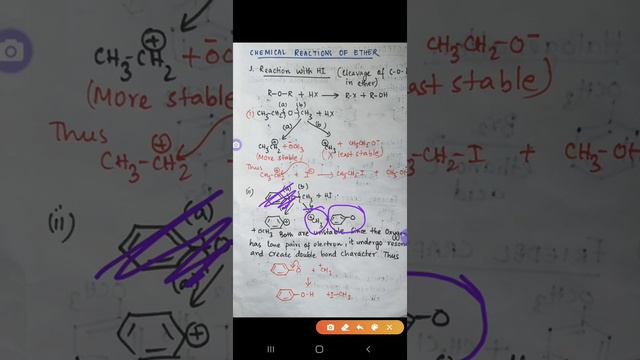 CHEMICAL REACTIONS OF ETHER
1. Reaction with HI (Cleavage of C-O-
in ether)
R-O-R + HX → R-X + R-OH
(a) (b)
(i) CH₃-CH₂-O-CH₃ + HX
(a) (b)
CH₃-CH₂ + OCH₃ CH₃ + CH₃CH₂O⁻
(More stable) (least stable)
Thus
CH₃-CH₂ + I → CH₃-CH₂-I + CH₃-OH
(ii) (a) (b)
CH₃ + HI
(a)
⊕ ⊕CH₃ + O
+ OCH₃ Both are unstable since the Oxygen
has lone pairs of electron, it undergo reson
and create double bond character. Thus
O + ⁺CH₃
↓
O-H + I-CH₃
CH₃-CH₂ + OC
(More stable)
Thus
CH₃-CH₂
(ii)
(a)
CH₃CH₂-O⁻
stable)
-CH₂-I + CH₃-OH
O